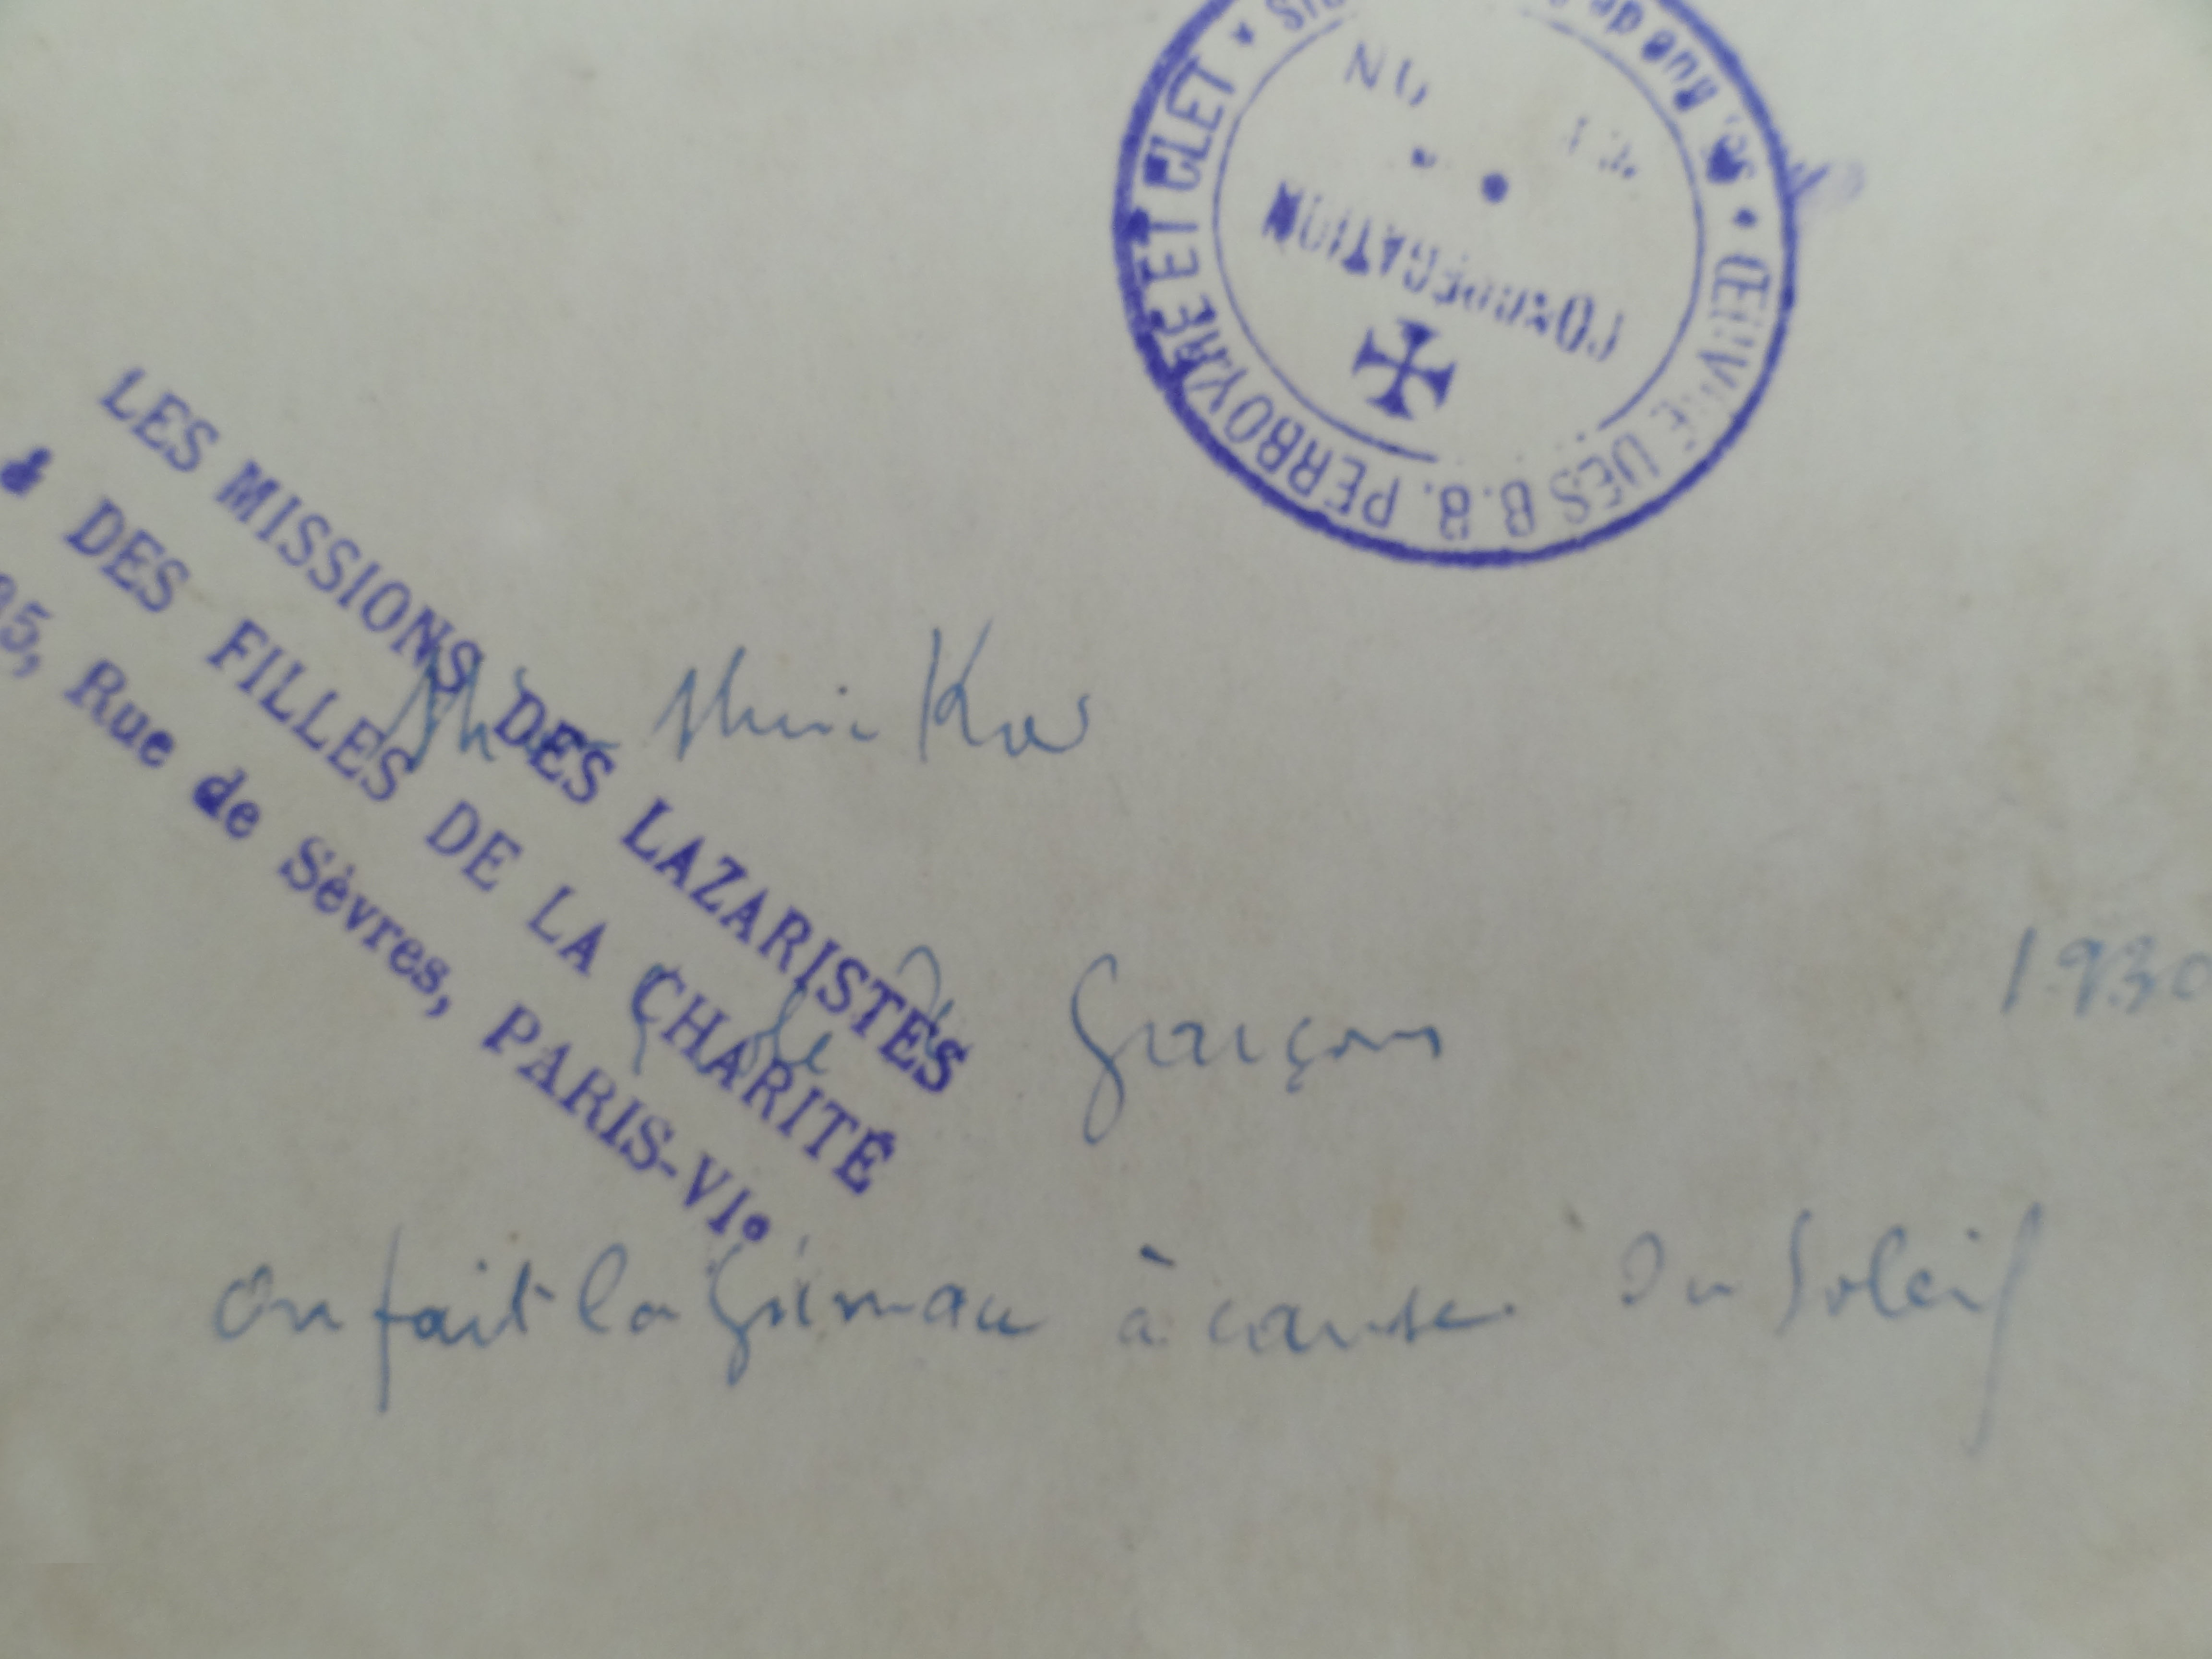 ŒUVRE DES B.B. PERBOYRE ET CLET ★
95, Rue de
CONGRÉGATION
LES MISSIONS DES LAZARISTES
& DES FILLES DE LA CHARITÉ
95, Rue de Sèvres, PARIS-VIe
École de Garçons
1930
on fait la grimace à cause du Soleil